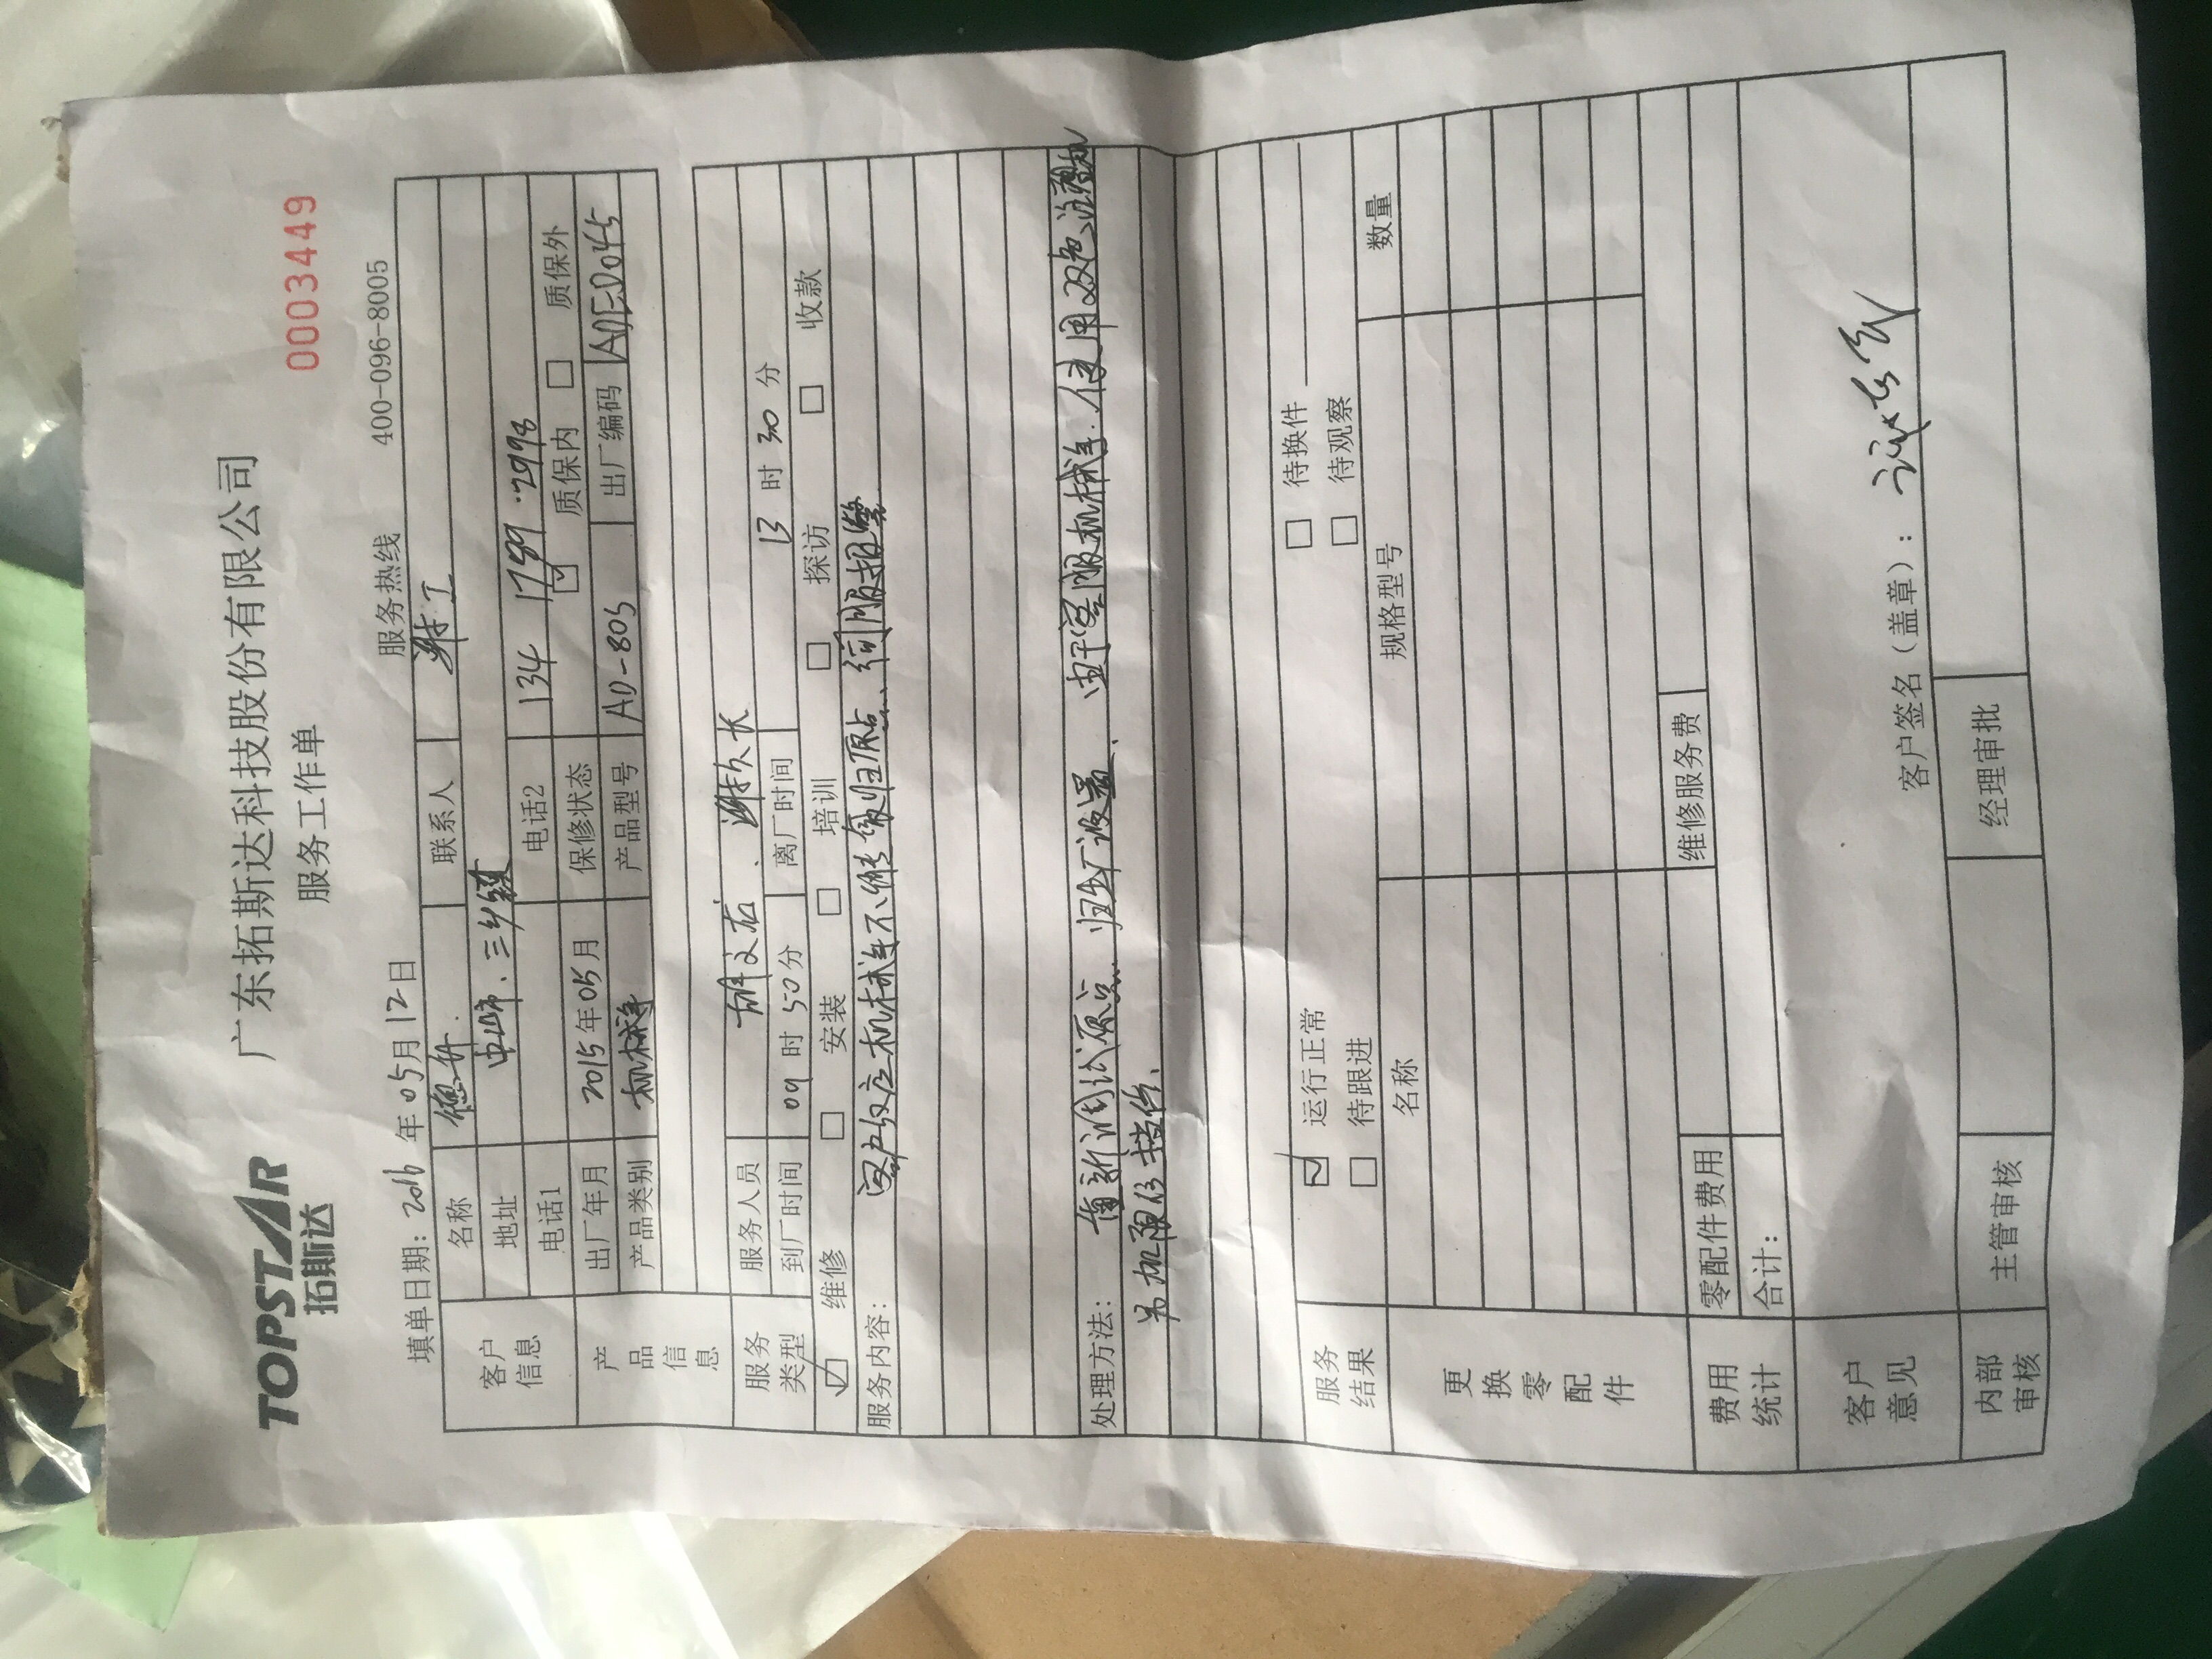 TOPSTAR
拓斯达
广东拓斯达科技股份有限公司
服务工作单
0003449
填单日期: 2016 年 05 月 12 日 服务热线 400-096-8005
客户信息
名称 德升 联系人 谢工
地址 中山市、三乡镇
电话1 电话2 134 1789 2998
产品信息
出厂年月 2015 年 05 月 保修状态 ☑ 质保内 □ 质保外
产品类别 机械手 产品型号 AD-80S 出厂编码
服务类型
服务人员 胡文右、谢久长
到厂时间 09 时 50 分 离厂时间 13 时 30 分
☑ 维修 □ 安装 □ 培训 □ 探访 □ 收款
服务内容: 客户反应机械手不能够归原点、伺服报警
处理方法: 重新调试原点、归出厂设置、由于客服机械手、使用双色注塑机
另加限位挡件、
服务结果
☑ 运行正常 □ 待换件
□ 待跟进 □ 待观察
更换零配件
名称 规格型号 数量
费用统计
零配件费用 维修服务费
合计:
客户意见
客户签名（盖章）:
内部审核
主管审核 经理审批